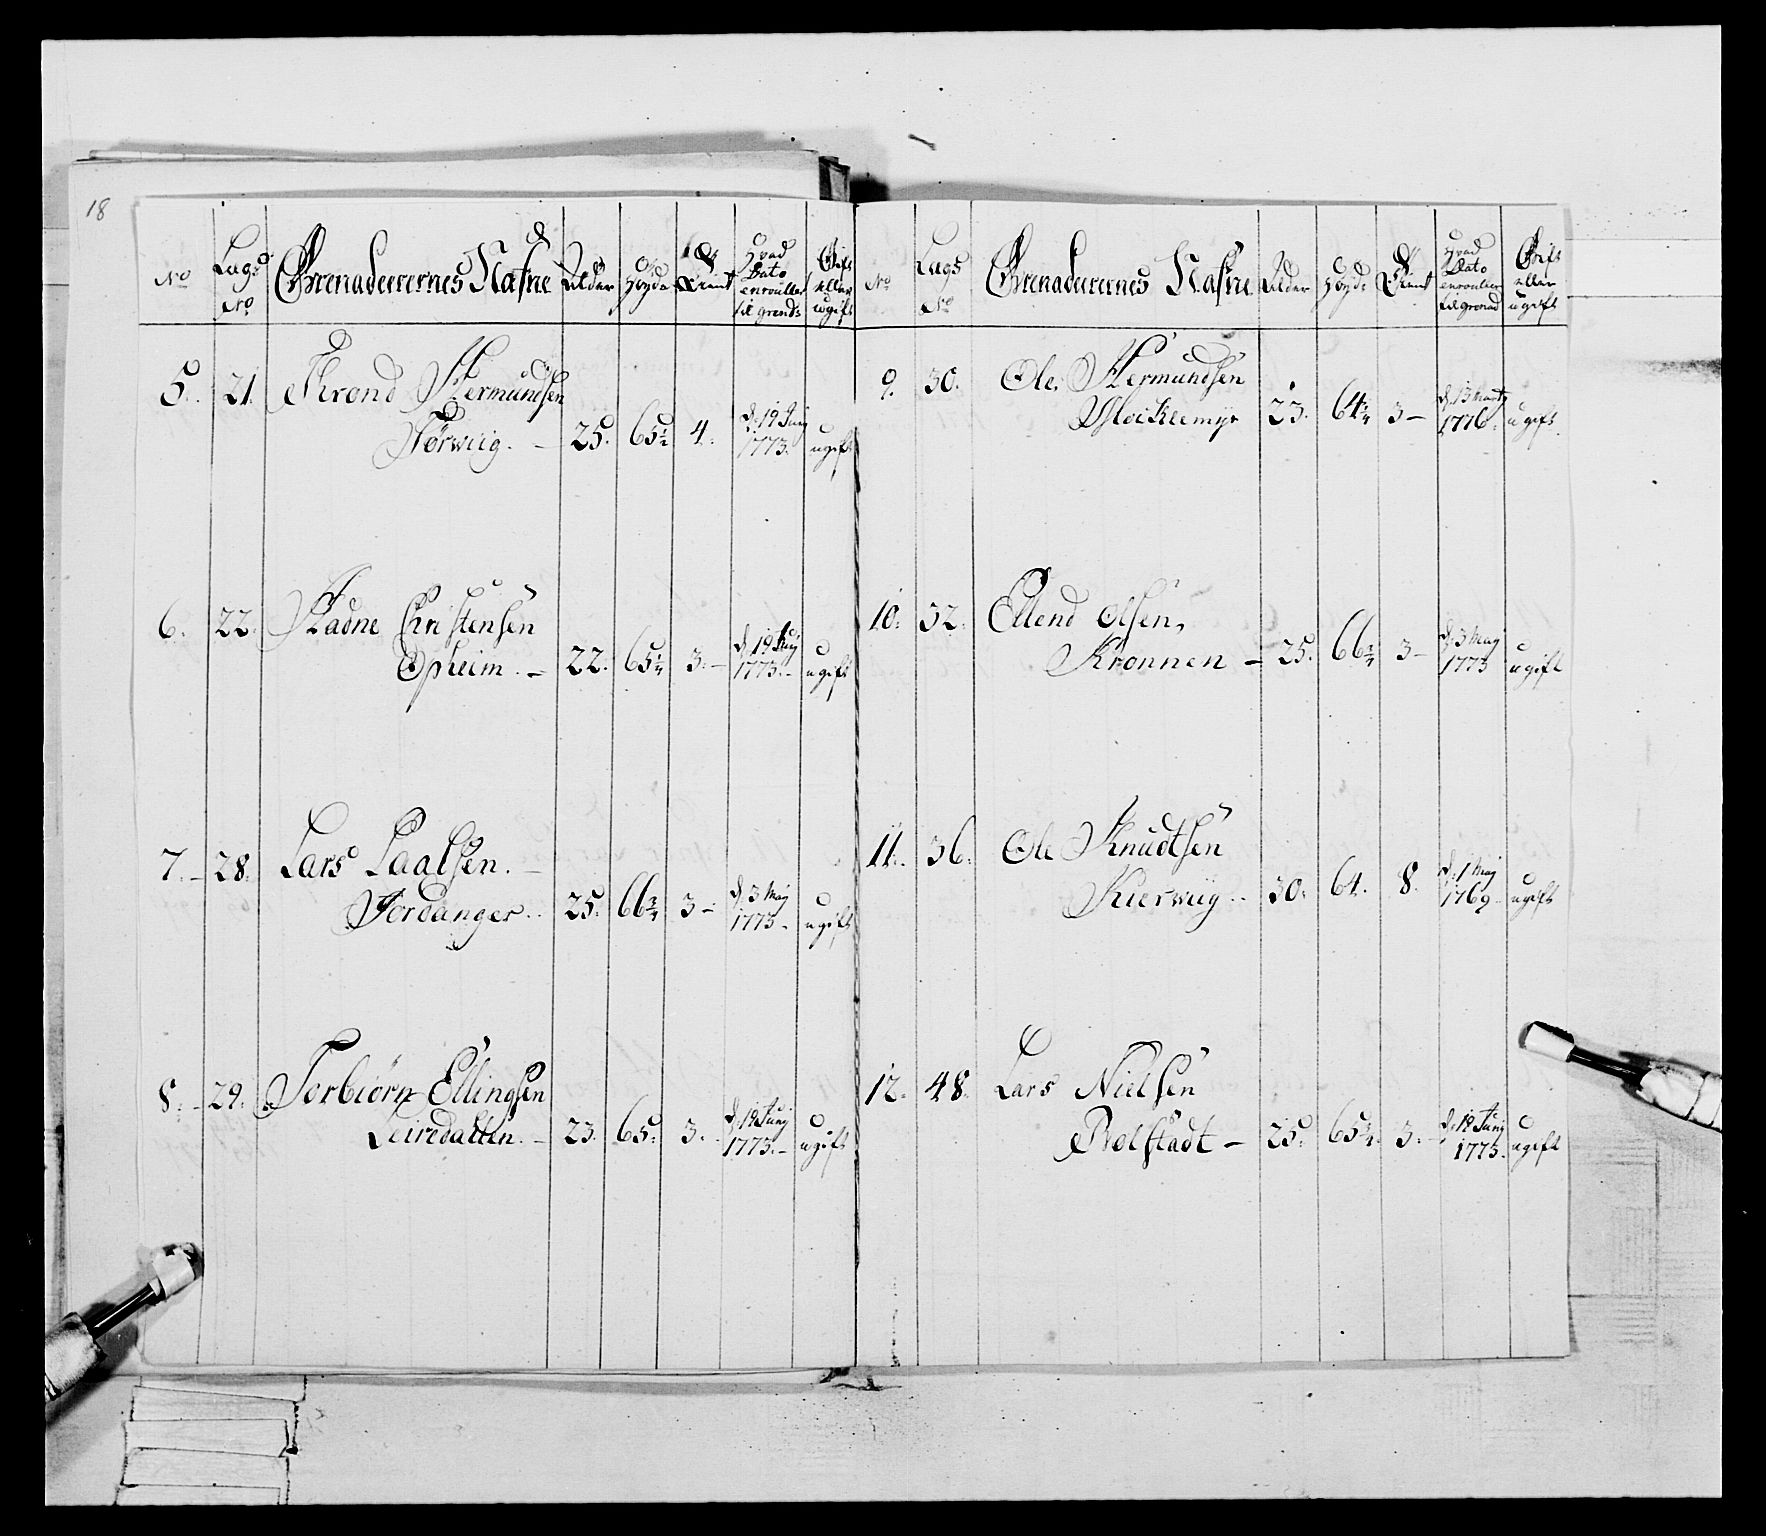 18
No Lægs No Grenadeerernes Nafne Alder Høyde Tient Hvad Dato enroullert til grends Gift eller ugift
5. 21. Trond Hermundsen
Nørwiig. — 25. 65½ 4. d. 19 Junj 1773. ugift
6. 22. Hadne Christensen
Opheim. — 22. 65¼ 3. — d. 19 Junj 1773. — ugift
7. — 28. Lars Laalsen. —
Jordanger. 25. 66¾ 3 — d. 3 Maj 1773 — ugift
8. — 29. Torbiørn Ellingsen
Leiredallen. — 23. 65. 3. d. 19 Junj 1773. — ugift
No Lægs No Grenadeerernes Nafne Alder Høyde Tient Hvad Dato enroullert til grenad Gift eller ugift
9. 30. Ole Hermundsen
23. 64¼ 3 — 1776. ugift
10. 32. Ellend Olsen,
Kronnen — 25. 66¾ 3 — d. 3 Maj 1773 ugift
11. 36. Ole Knudtsen
Kierwiig. 30. 64. 8. d. 1 Maj 1769 — ugift
12. 48. Lars Nielsen
Rolfstadt — 25. 65¾ 3. d. 19 Junj 1773. ugift